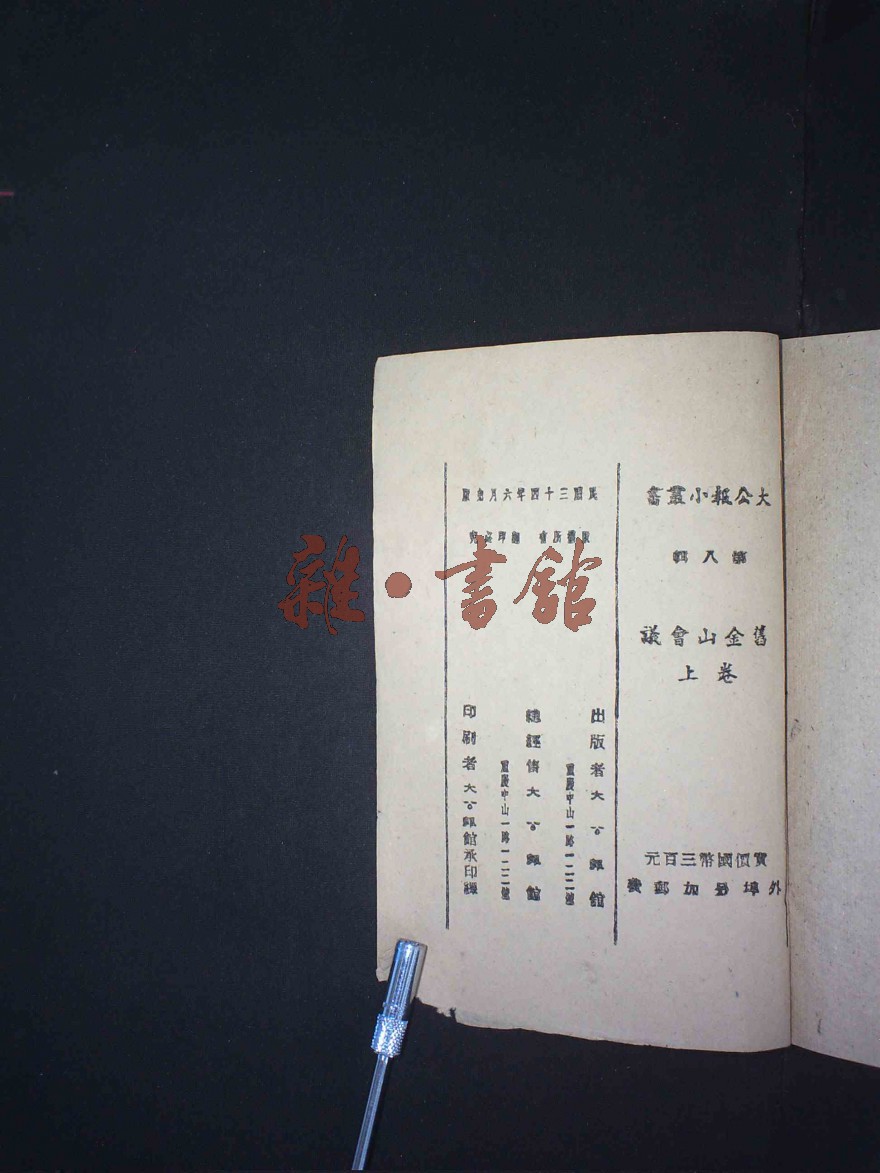 大公報小叢書
第八輯
舊金山會議
上卷
實價國幣三百元
外埠另加郵費
民國三十四年六月初版
版權所有 翻印必究
出版者大公報館
重慶中山一路一二二號
總經售大公報館
重慶中山一路一二二號
印刷者大公報館承印課
雜·書館